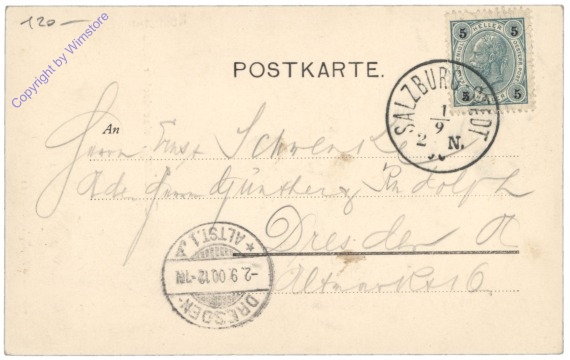 120.—
Copyright by Wimstore
5 HELLER 5
5 5
POSTKARTE.
SALZBURG-STADT
1
9
2 N.
00
An
Herrn Ernst Schwenk
Adr. Herrn Günther & Rudolph
Dresden A
Altmarkt 6
* ALTST. 1. A
-2.9.00.12-1N
DRESDEN-